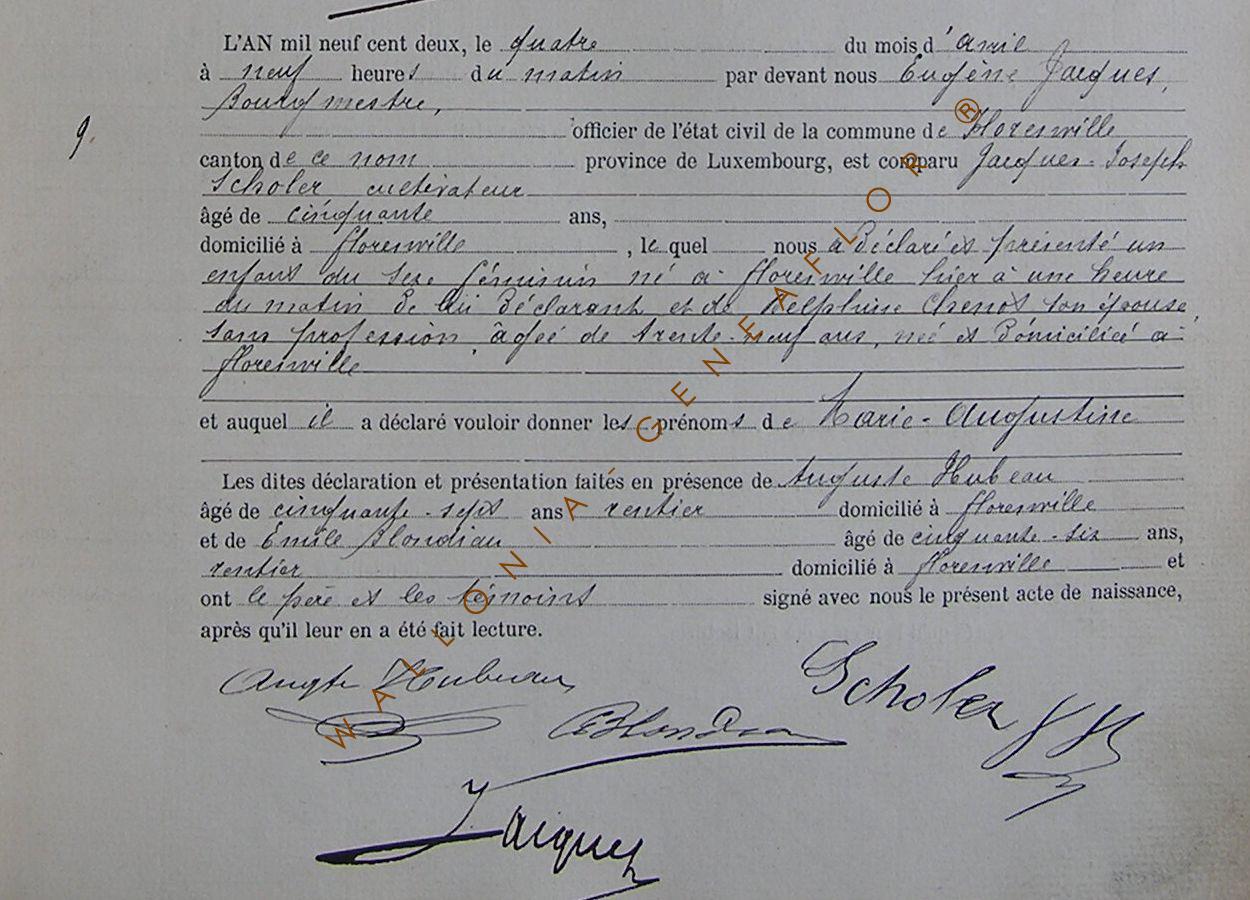 L'AN mil neuf cent deux, le quatre du mois d'avril
à neuf heures du matin par devant nous Eugène Jacques,
Bourgmestre,
9.
officier de l'état civil de la commune de Florenville
canton de ce nom province de Luxembourg, est comparu Jacques-Joseph
Scholer cultivateur
âgé de cinquante ans,
domicilié à Florenville, le quel nous a déclaré et présenté un
enfant du sexe féminin né à Florenville hier à une heure
du matin de lui déclarant et de Delphine Chenot son épouse,
sans profession, âgée de trente-neuf ans, née et domiciliée à
Florenville
et auquel il a déclaré vouloir donner les prénoms de Marie-Augustine
Les dites déclaration et présentation faites en présence de Auguste Hubeau
âgé de cinquante-sept ans rentier domicilié à Florenville
et de Emile Blondiau âgé de cinquante-six ans,
rentier domicilié à Florenville et
ont le père et les témoins signé avec nous le présent acte de naissance,
après qu'il leur en a été fait lecture.
Augte Hubeau
Scholer JJ
EBlondiau
Jacques
WALLONIA GENEAFLOR ®